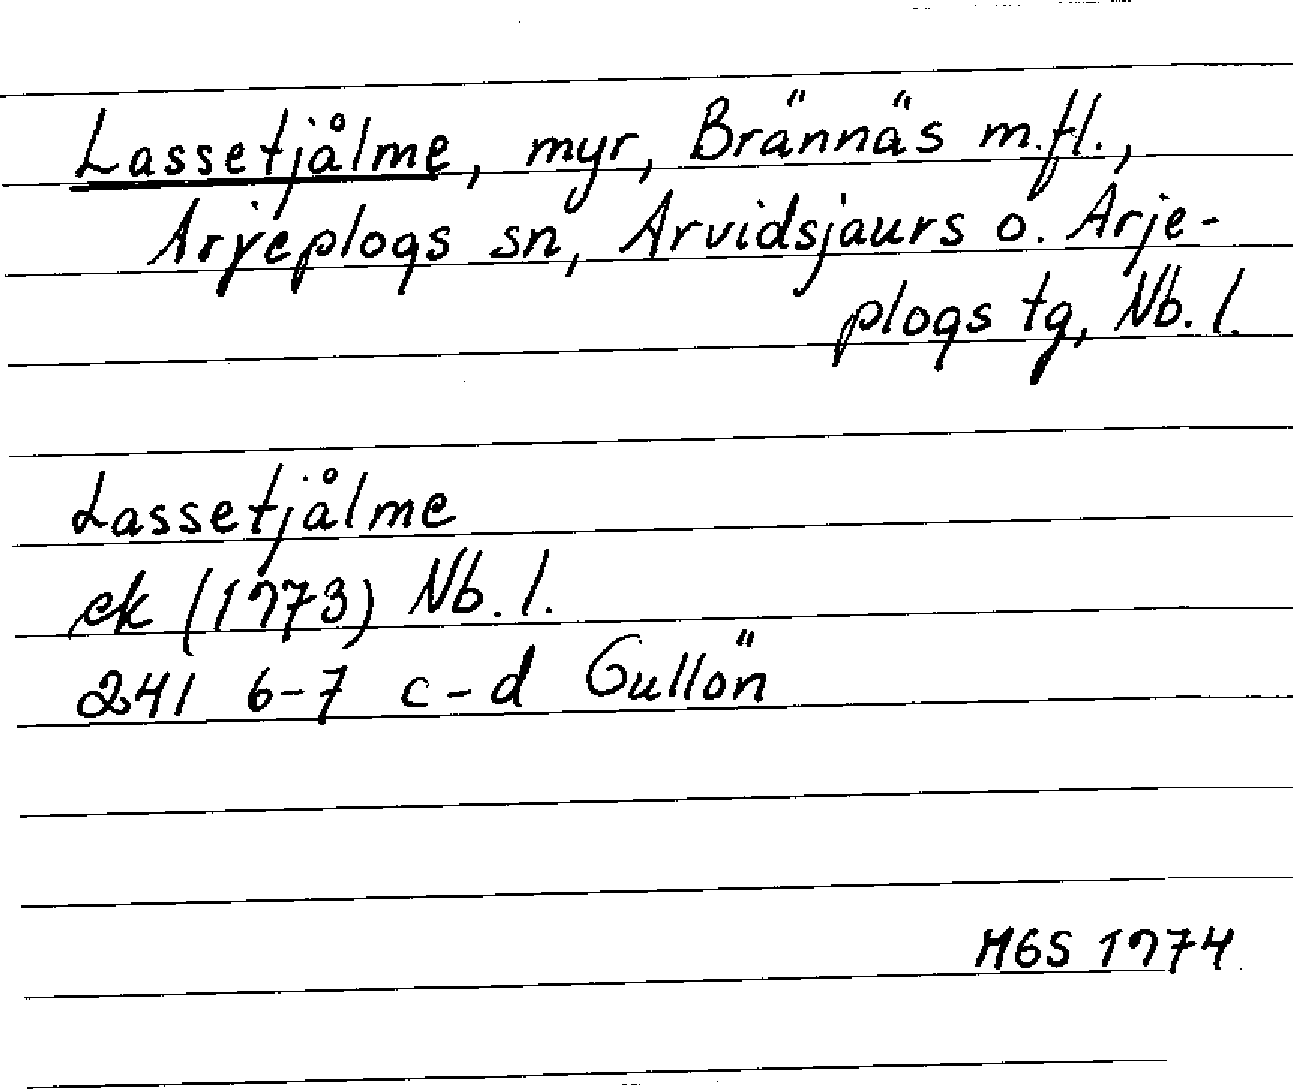 Lassetjålme, myr, Brännäs m.fl.,
Arjeplogs sn, Arvidsjaurs o. Arje-
plogs tg, Nb. l.
Lassetjålme
ek (1973) Nb. l.
241 6-7 c-d Gullön
MGS 1974